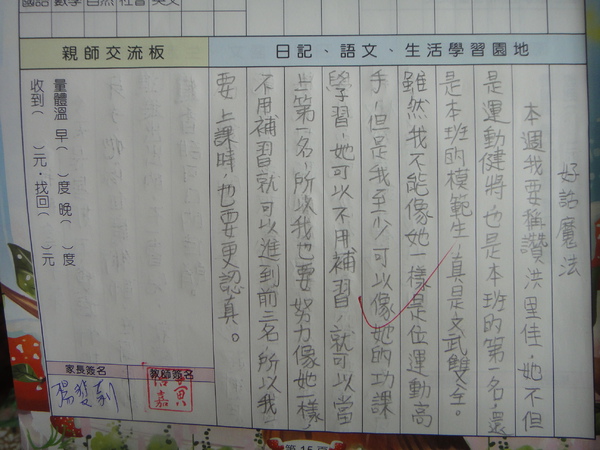 國語 數學 自然 社會 英文
親師交流板
日記、語文、生活學習園地
好話魔法
本週我要稱讚洪里佳,她不但
是運動健將,也是本班的第一名,還
是本班的模範生,真是文武雙全。
雖然我不能像她一樣是位運動高
手,但是我至少可以像她的功課
學習,她可以不用補習,就可以當
上第一名,所以我也要努力像她一樣
不用補習就可以進到前三名,所以我
要上課時,也要更認真。
量體溫 早( )度 晚( )度
收到( )元,找回( )元
家長簽名
教師簽名
第 15 頁